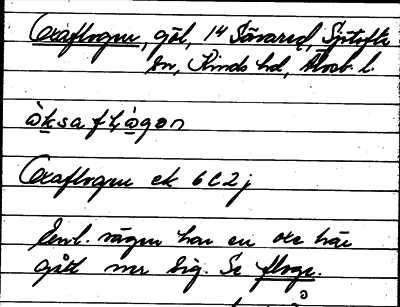 Oxaflogen, göl, 14 Sävared, Sjötofta
sn, Kinds hd, Älvsb. l.
òksaflògan
Oxaflogen ek 6C2j
Enl. sägen har en oxe här
gått ner sig. Se floge.